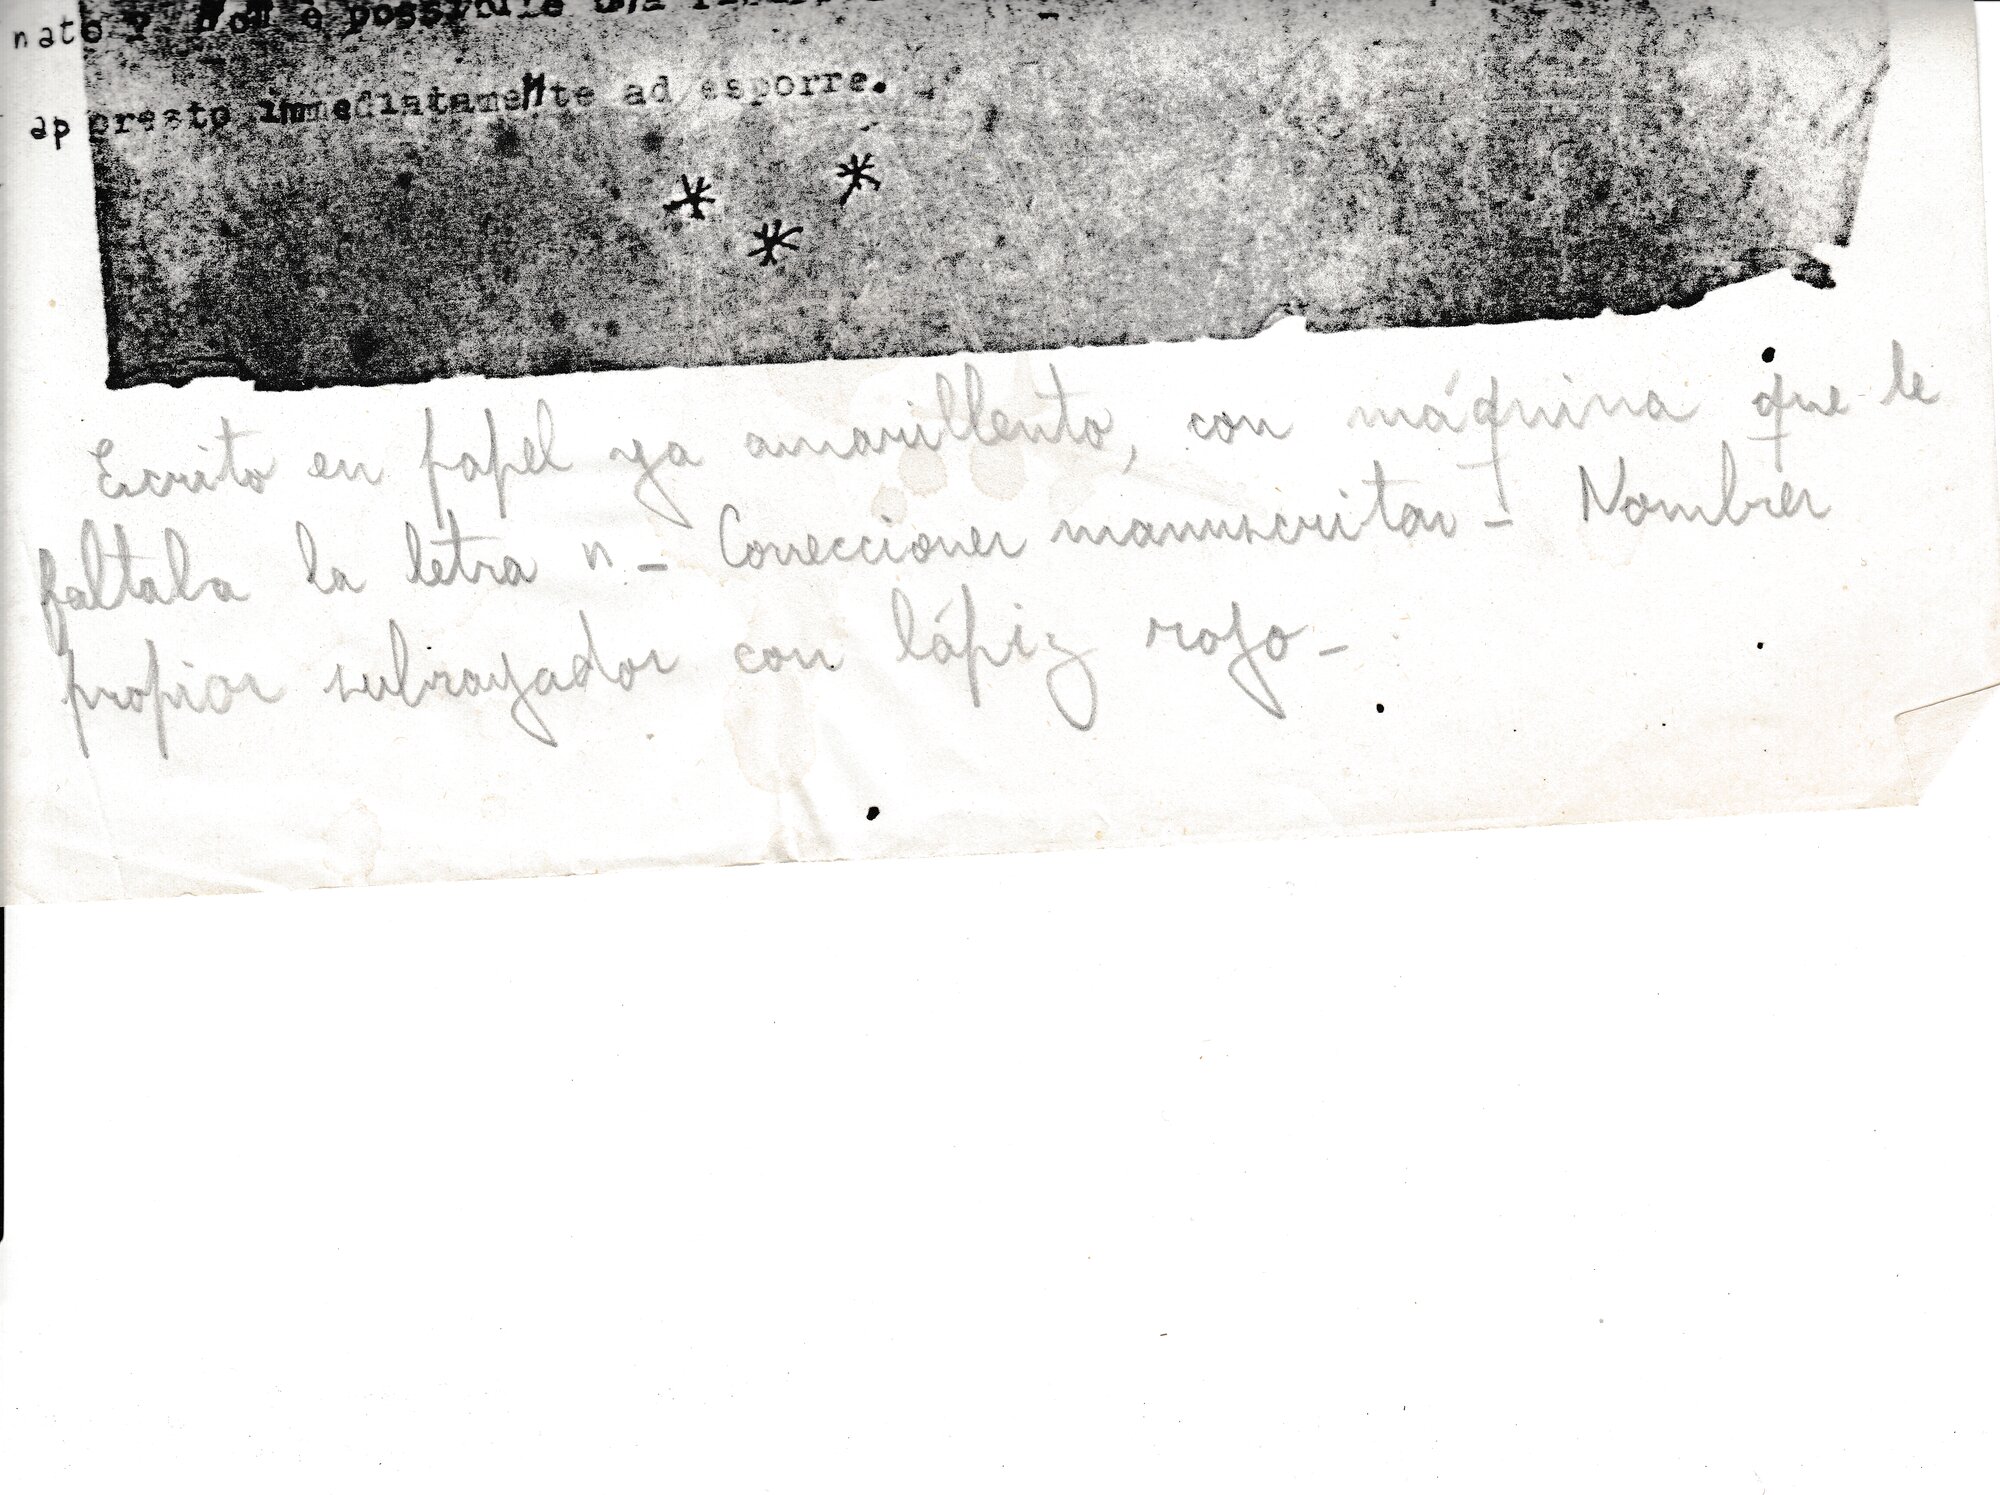 nato ? Non è possibile una
appresto immediatamente ad esporre.
* * *
Escrito en papel ya amarillento, con máquina que le
faltaba la letra n _ Correcciones manuscritas _ Nombres
propios subrayados con lápiz rojo _